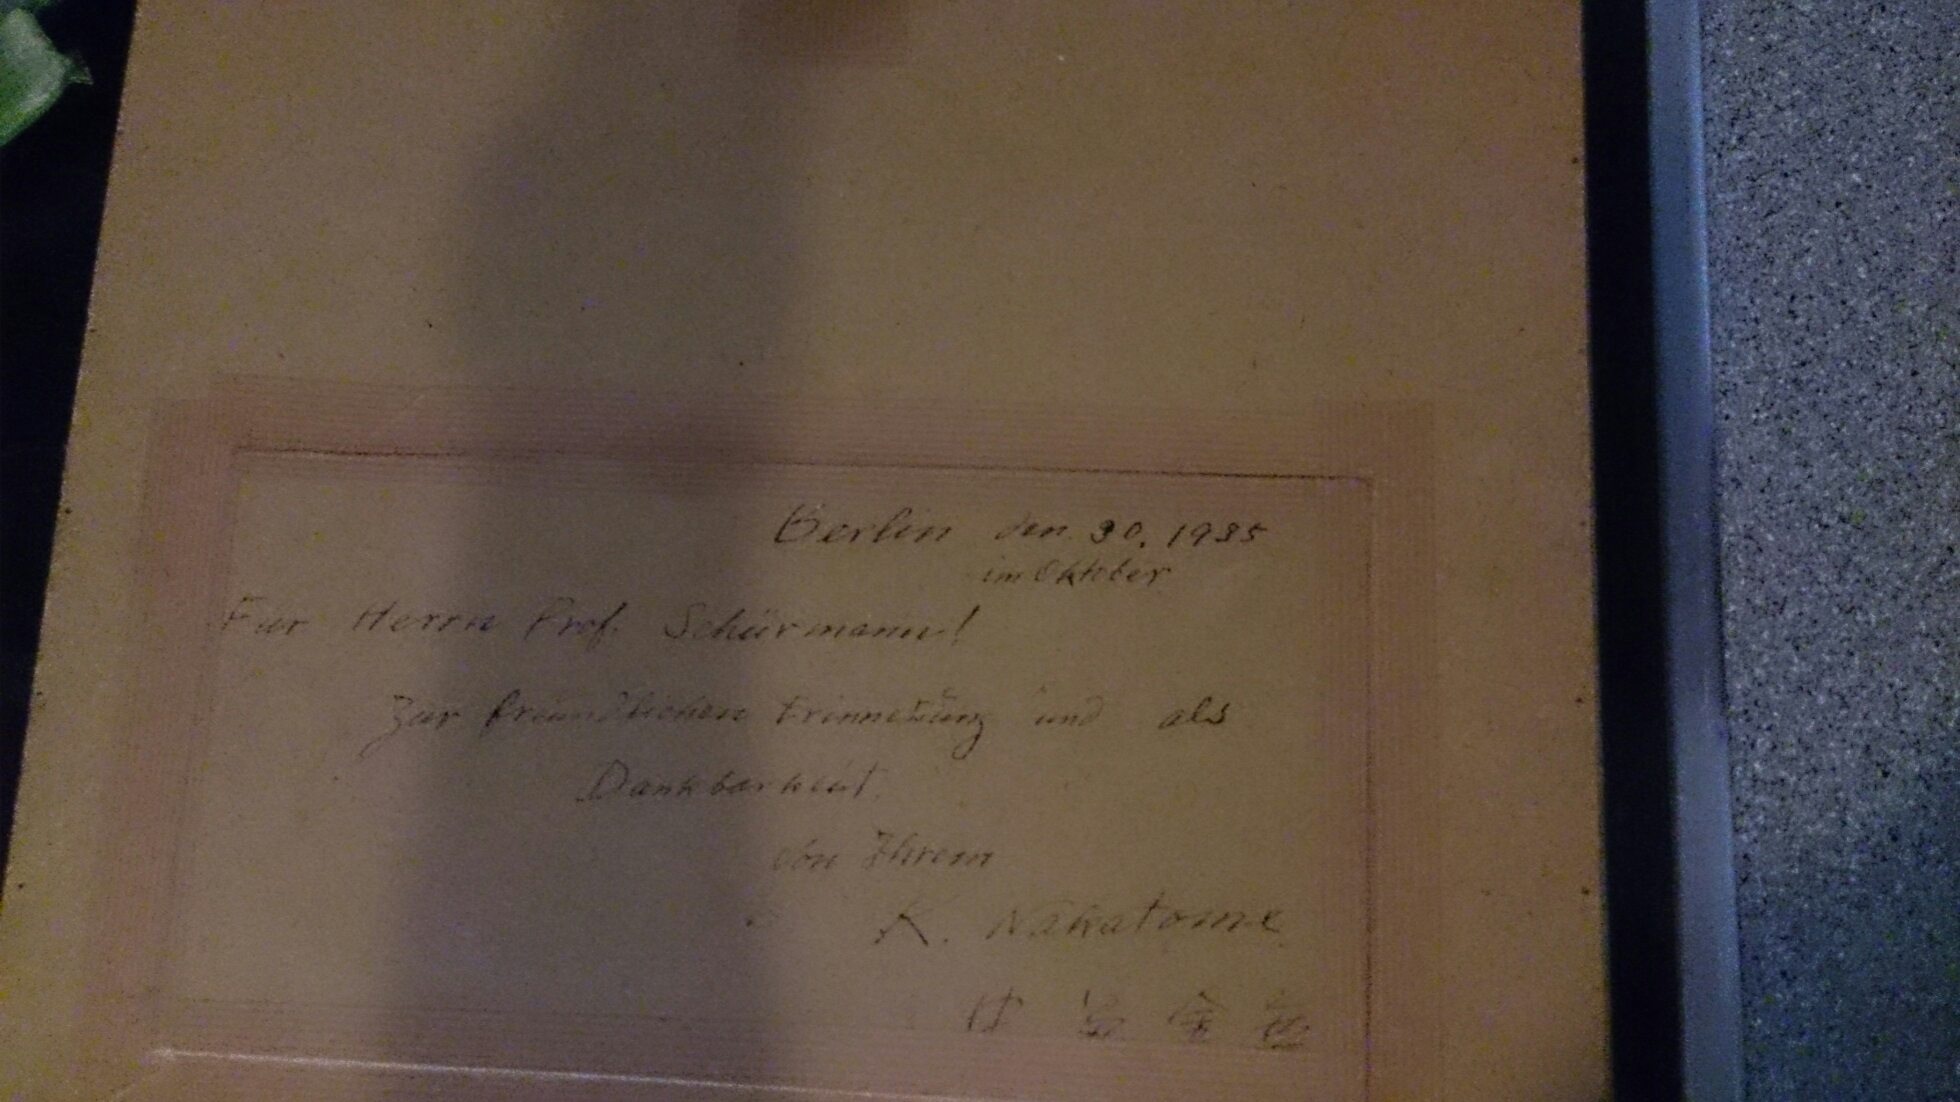 Berlin den 30. 1935
im Oktober
Für Herrn Prof. Schürmann!
Zur freundlichen Erinnerung und als
Dankbarkeit
von Ihrem
K. Nakatome